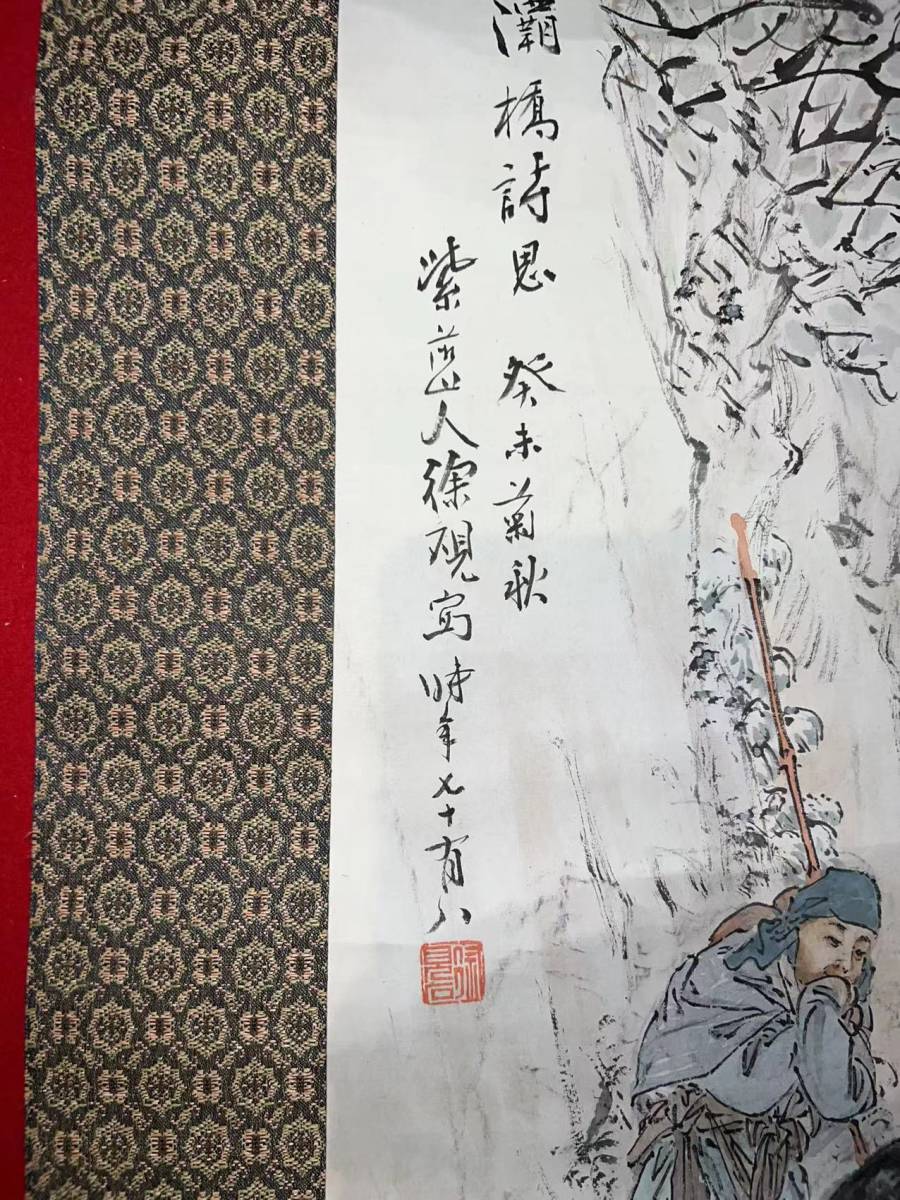 灞橋詩思 癸未菊秋
紫人徐硯寫時年七十有八